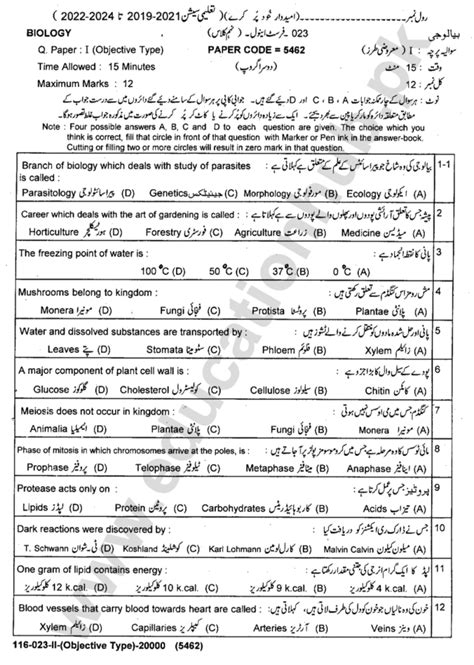 رول نمبر (امیدوار خود پُر کرے) (تعلیمی سیشن 2021-2019 تا 2024-2022)
BIOLOGY 023 - فرسٹ اینول - (نہم کلاس) بیالوجی
Q. Paper : I (Objective Type) PAPER CODE = 5462 سوالیہ پرچہ : I (معروضی طرز)
Time Allowed : 15 Minutes (دوسرا گروپ) وقت : 15 منٹ
Maximum Marks : 12 کل نمبر : 12
نوٹ : ہر سوال کے چار ممکنہ جوابات A ، B ، C اور D دیئے گئے ہیں۔ جوابی کاپی پر ہر سوال کے سامنے دیئے گئے دائروں میں سے درست جواب کے
مطابق متعلقہ دائرہ کو مارکر یا پین سے بھر دیجئے۔ ایک سے زیادہ دائروں کو پُر کرنے یا کاٹ کر پُر کرنے کی صورت میں مذکورہ جواب غلط تصور ہو گا۔
Note : Four possible answers A, B, C and D to each question are given. The choice which you
think is correct, fill that circle in front of that question with Marker or Pen ink in the answer-book.
Cutting or filling two or more circles will result in zero mark in that question.
Branch of biology which deals with study of parasites بیالوجی کی وہ شاخ جو پیراسائٹس کے علم کے متعلق ہے کہلاتی ہے : 1-1
is called :
Parasitology (D) پیراسائٹولوجی Genetics (C) جینیٹکس Morphology (B) مورفولوجی Ecology (A) ایکولوجی
Career which deals with the art of gardening is called : پیشہ جس کا تعلق آرائشی پودوں اور پھلوں والے پودوں سے ہے کہلاتا ہے : 2
Horticulture (D) ہورٹیکلچر Forestry (C) فورسٹری Agriculture (B) زراعت Medicine (A) میڈیسن
The freezing point of water is : پانی کا نقطۂ انجماد ہے : 3
100 °C (D) 50 °C (C) 37 °C (B) 0 °C (A)
Mushrooms belong to kingdom : مش رومز اس کنگڈم سے تعلق رکھتی ہیں : 4
Monera (D) مونیرا Fungi (C) فنجائی Protista (B) پروٹسٹا Plantae (A) پلانٹی
Water and dissolved substances are transported by : پانی اور حل شدہ مادوں کو منتقل کرنے والے ٹشوز ہیں : 5
Leaves (D) پتے Stomata (C) سٹومیٹا Phloem (B) فلوئم Xylem (A) زائلم
A major component of plant cell wall is : پودے کے سیل وال کا بڑا جزو ہے : 6
Glucose (D) گلوکوز Cholesterol (C) کولیسٹرول Cellulose (B) سیلولوز Chitin (A) کائٹن
Meiosis does not occur in kingdom : کنگڈم جس میں می اوسس نہیں ہوتی : 7
Animalia (D) اینیمیلیا Plantae (C) پلانٹی Fungi (B) فنجائی Monera (A) مونیرا
Phase of mitosis in which chromosomes arrive at the poles, is : مائی ٹوسس کا وہ مرحلہ ہے جس میں کروموسومز پولز پر آ جاتے ہیں : 8
Prophase (D) پروفیز Telophase (C) ٹیلوفیز Metaphase (B) میٹافیز Anaphase (A) اینافیز
Protease acts only on : پروٹیئیز جس پر عمل کرتا ہے : 9
Lipids (D) لپڈز Protein (C) پروٹین Carbohydrates (B) کاربوہائیڈریٹس Acids (A) تیزاب
Dark reactions were discovered by : جس نے ڈارک ری ایکشنز کو دریافت کیا : 10
T. Schwann (D) ٹی۔شوان Koshland (C) کوشلینڈ Karl Lohmann (B) کارل لومین Malvin Calvin (A) میلون کیلون
One gram of lipid contains energy : لپڈ کا ایک گرام انرجی کی جتنی مقدار رکھتا ہے : 11
12 k.cal. (D) 12 کلو کیلوریز 10 k.cal. (C) 10 کلو کیلوریز 9 k.cal. (B) 9 کلو کیلوریز 4 k.cal. (A) 4 کلو کیلوریز
Blood vessels that carry blood towards heart are called : خون کی وہ نالیاں جو خون کو دل کی طرف لاتی ہیں، کہلاتی ہیں : 12
Xylem (D) زائلم Capillaries (C) کیپلریز Arteries (B) آرٹریز Veins (A) وینز
116-023-II-(Objective Type)-20000 (5462)